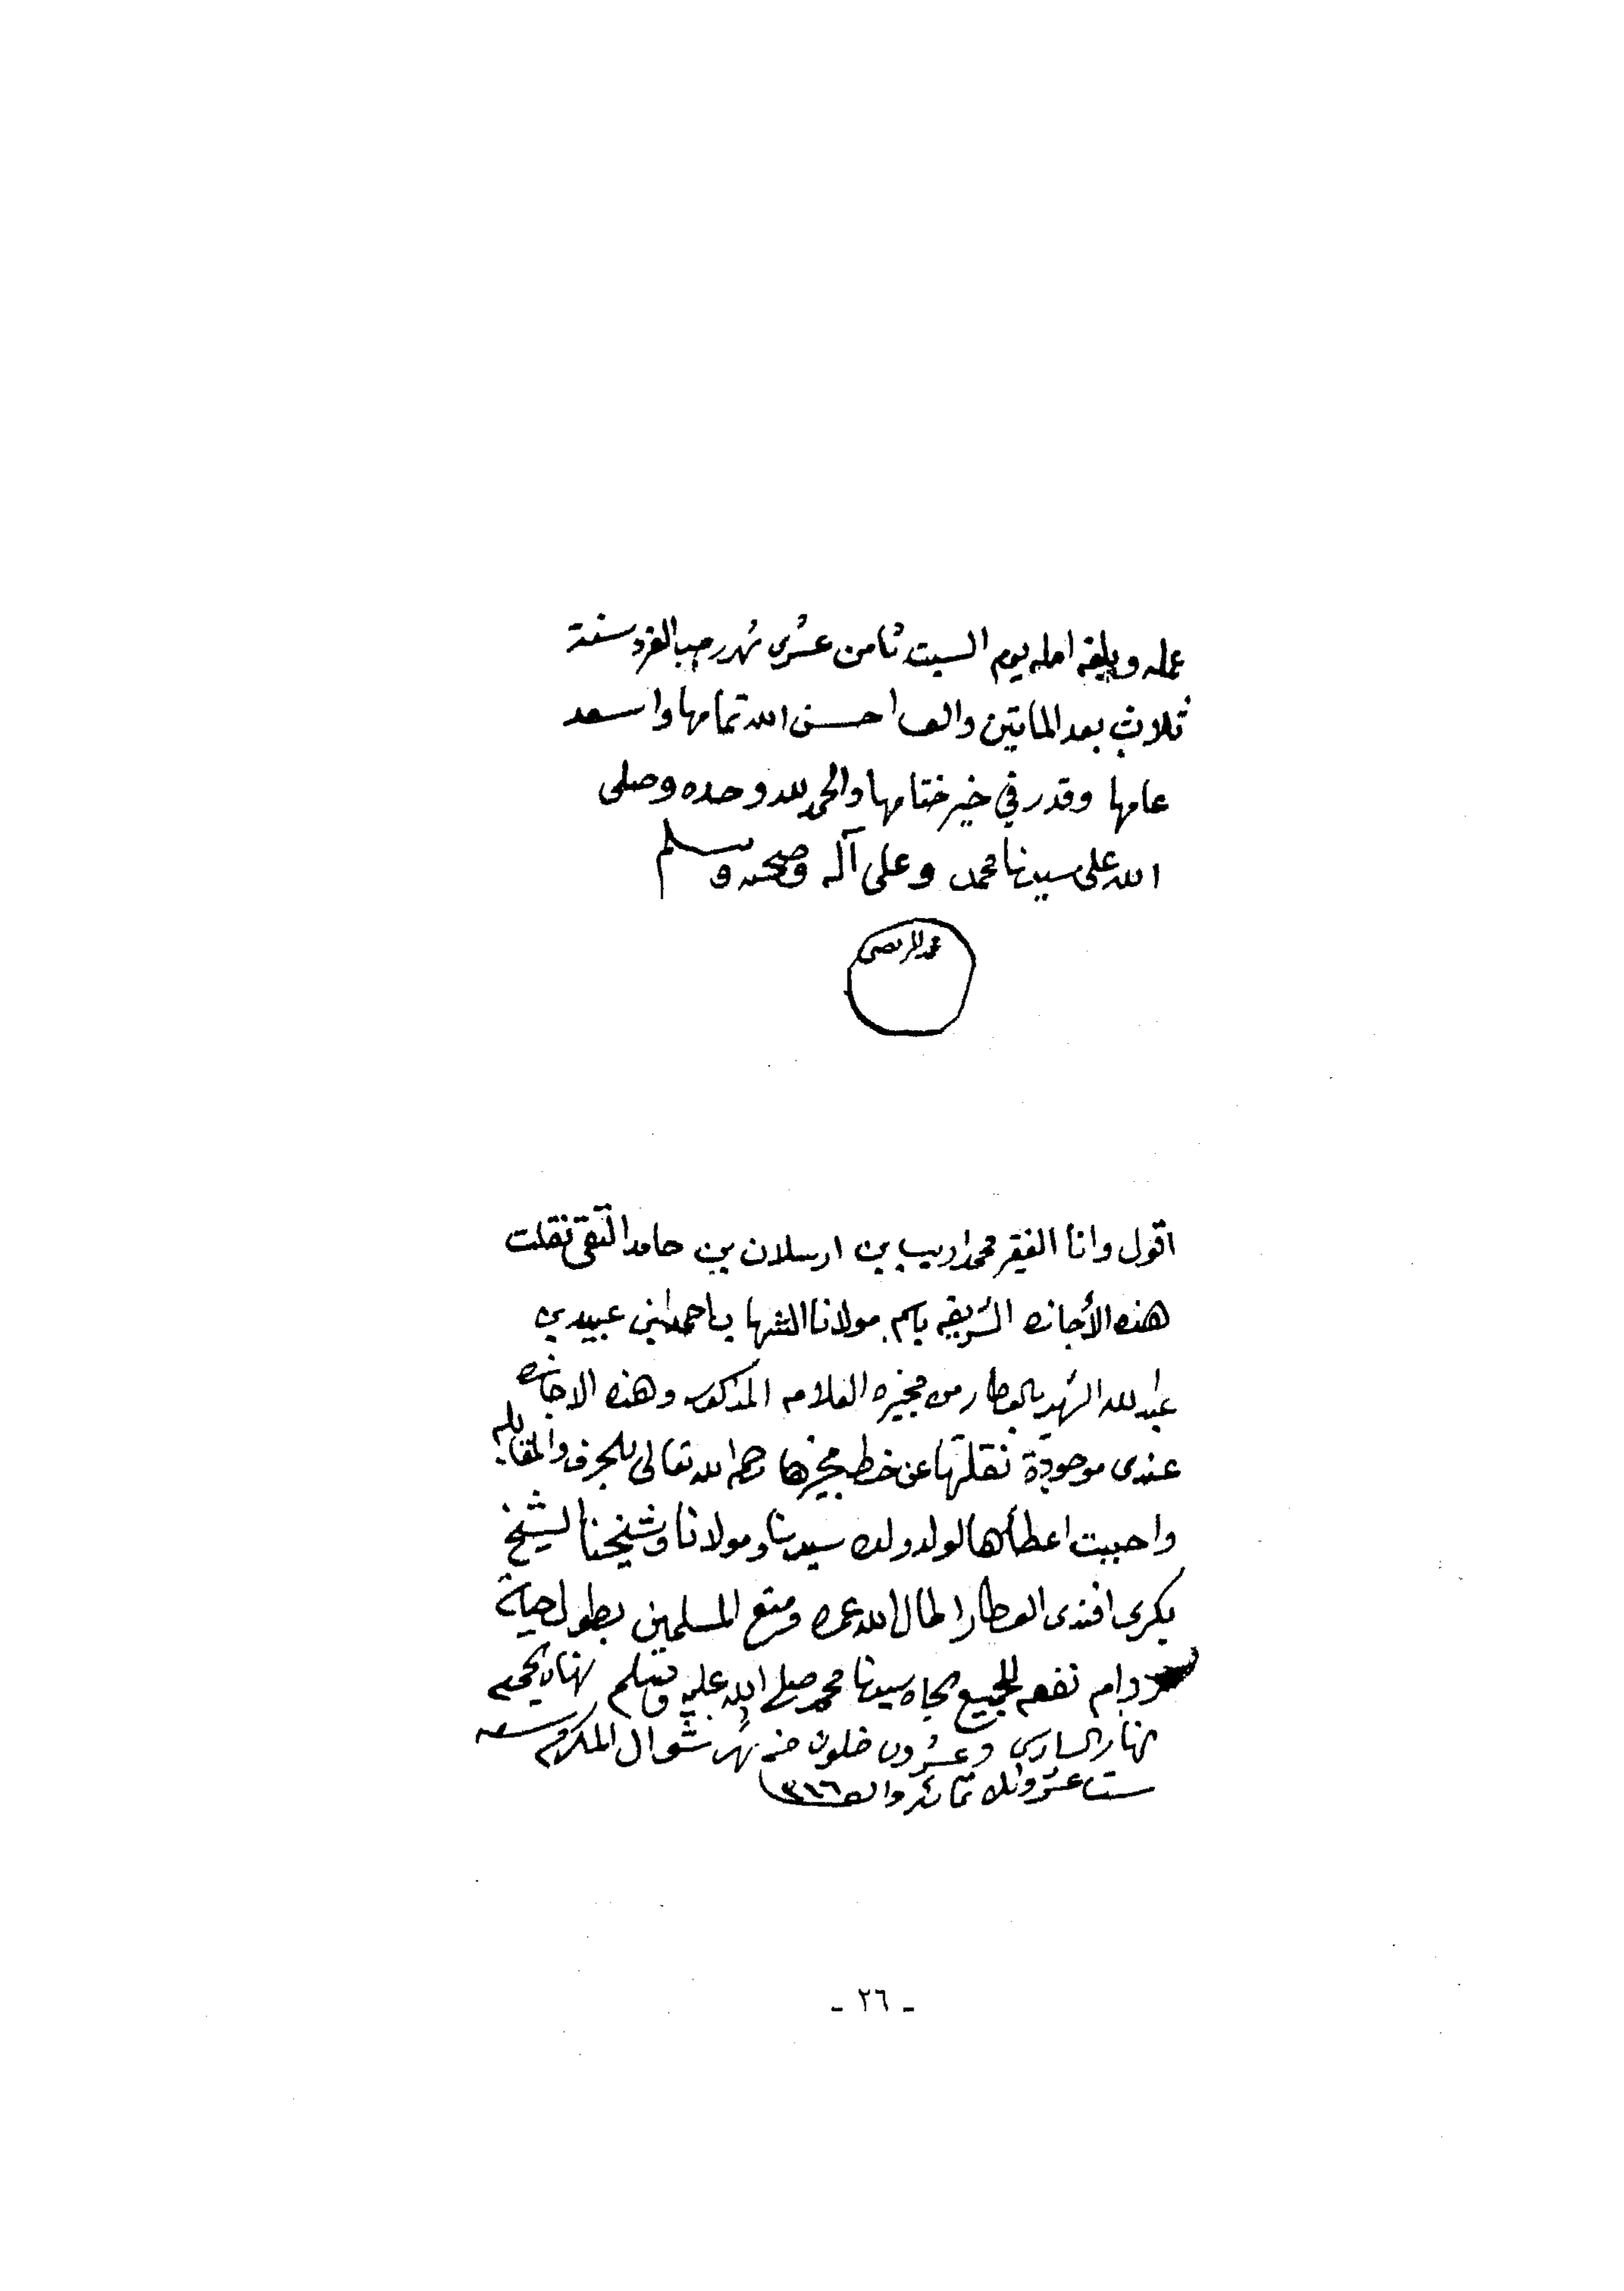 عمله وبلغه امله يوم السبت ثامن عشرى شهر رجب الفرد سنة
ثلاث بعد المايتين والف احسن الله تمامها واسعد
عامها وقدر في خير ختامها والحمد لله وحده وصلى
الله على سيدنا محمد وعلى آله وصحبه وسلم
محمد المرتضى
اقول وانا الفقير محمد اديب بن ارسلان بن حامد التقى نقلت
هذه الأجازه الشريفه باسم مولانا الشهاب احمد بن عبيد بن
عبد الله الشهير بالعطار من مجيزه العلامه المذكور وهذه الاجازه
عندى موجودة نقلتها عن خط مجيزها رحمه الله تعالى بالحرف والمقابله
واحببت اعطأها لولد ولده سيدنا ومولانا وشيخنا الشيخ
بكرى افندى العطار اطال الله عمره ومتع المسلمين بطول حياته
ودام نفعه للجميع بجاه سيدنا محمد صلى الله عليه وسلم
نهار السادس وعشرون خلون من شهر شوال المكرم سنه
ست عشر وثلاثمائة والف ١٣١٦
- ٢٦ -